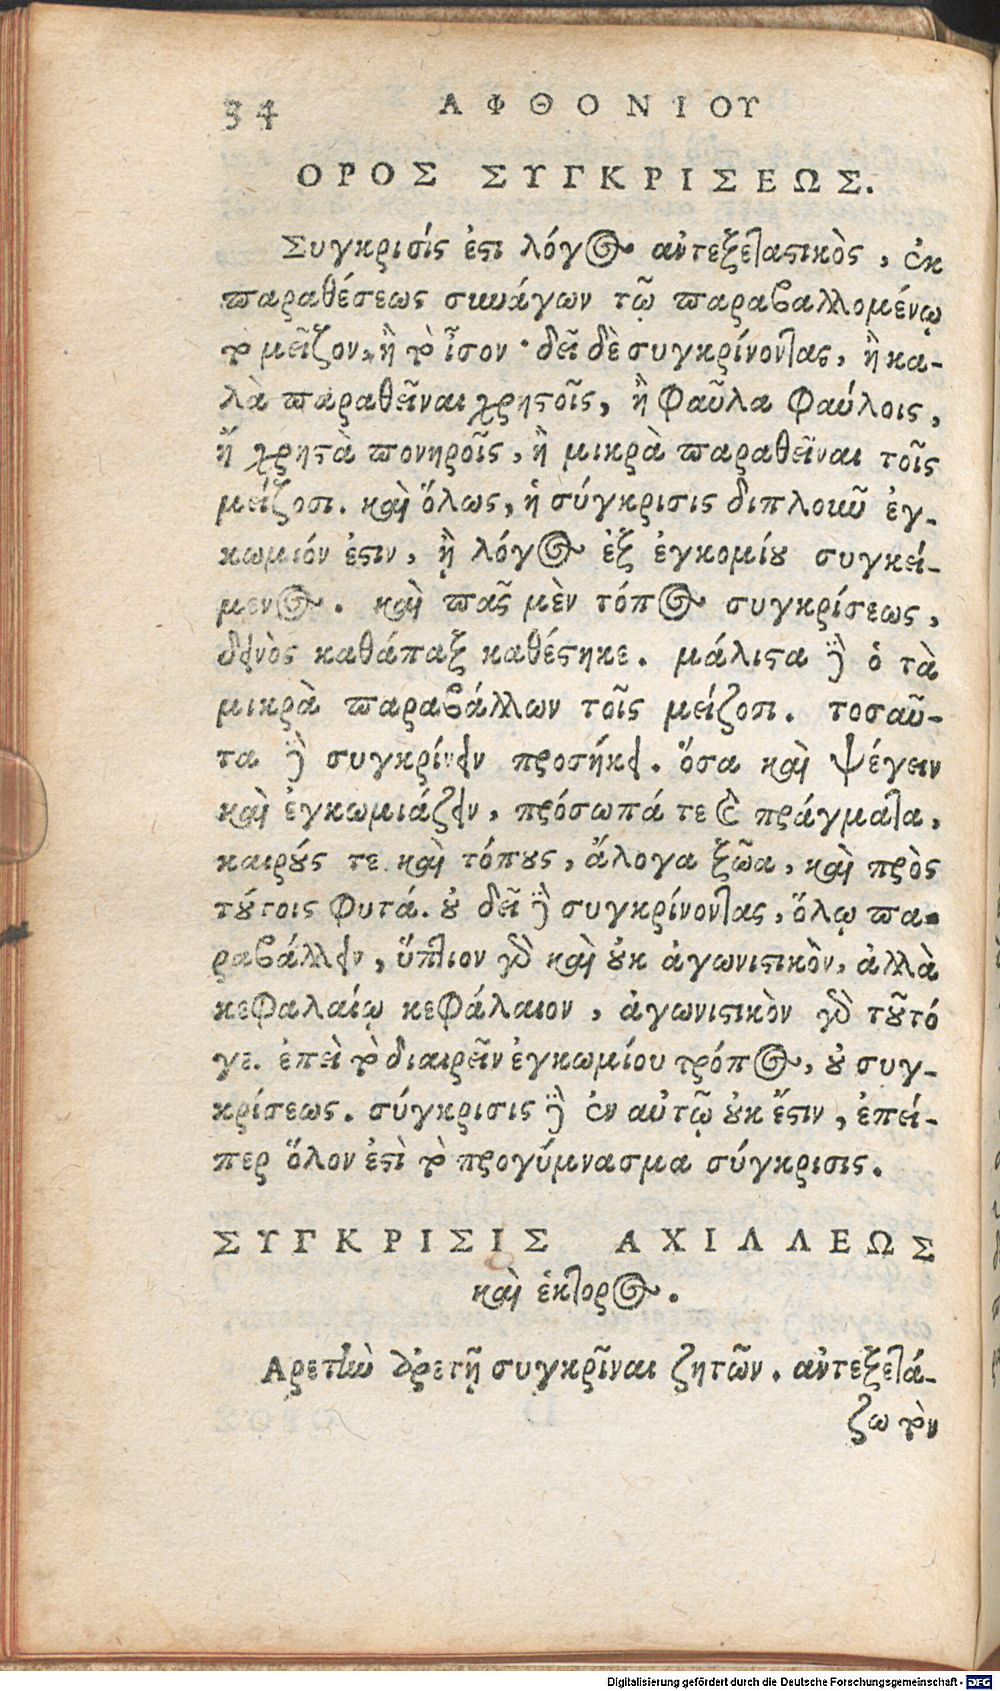 34 ΑΦΘΟΝΙΟΥ
ΟΡΟΣ ΣΥΓΚΡΙΣΕΩΣ.
Συγκρισίς ἐστι λόγος ἀντεξεταστικὸς, ἐκ
παραθέσεως συνάγων τῷ παραβαλλομένῳ
τὸ μεῖζον, ἢ τὸ ἶσον· δεῖ δὲ συγκρίνοντας, ἢ κα-
λὰ παραθεῖναι χρηστοῖς, ἢ φαῦλα φαύλοις,
ἢ χρηστὰ πονηροῖς, ἢ μικρὰ παραθεῖναι τοῖς
μείζοσι. καὶ ὅλως, ἡ σύγκρισις διπλοῦν ἐγ-
κωμιόν ἐστιν, ἢ λόγος ἐξ ἐγκομίου συγκεί-
μενος. καὶ πᾶς μὲν τόπος συγκρίσεως,
δεινὸς καθάπαξ καθέστηκε. μάλιστα δὲ ὁ τὰ
μικρὰ παραβάλλων τοῖς μείζοσι. τοσαῦ-
τα δὲ συγκρίνειν προσήκει. ὅσα καὶ ψέγειν
καὶ ἐγκωμιάζειν, πρόσωπά τε καὶ πράγματα,
καιρούς τε καὶ τόπους, ἄλογα ζῶα, καὶ πρὸς
τούτοις φυτά. οὐ δεῖ δὲ συγκρίνοντας, ὅλῳ πα-
ραβάλλειν, ὕπτιον γὰρ καὶ οὐκ ἀγωνιστικὸν, ἀλλὰ
κεφαλαίῳ κεφάλαιον, ἀγωνιστικὸν γὰρ τοῦτό
γε. ἐπεὶ τὸ διαιρεῖν ἐγκωμίου τρόπος, οὐ συγ-
κρίσεως. σύγκρισις δὲ ἐν αὐτῷ οὐκ ἔστιν, ἐπεί-
περ ὅλον ἐστὶ τὸ προγύμνασμα σύγκρισις.
ΣΥΓΚΡΙΣΙΣ ΑΧΙΛΛΕΩΣ
καὶ ἑκτορος.
Αρετὴν ἀρετῇ συγκρῖναι ζητῶν. ἀντεξετά-
ζω τὸν
Digitalisierung gefördert durch die Deutsche Forschungsgemeinschaft - DFG